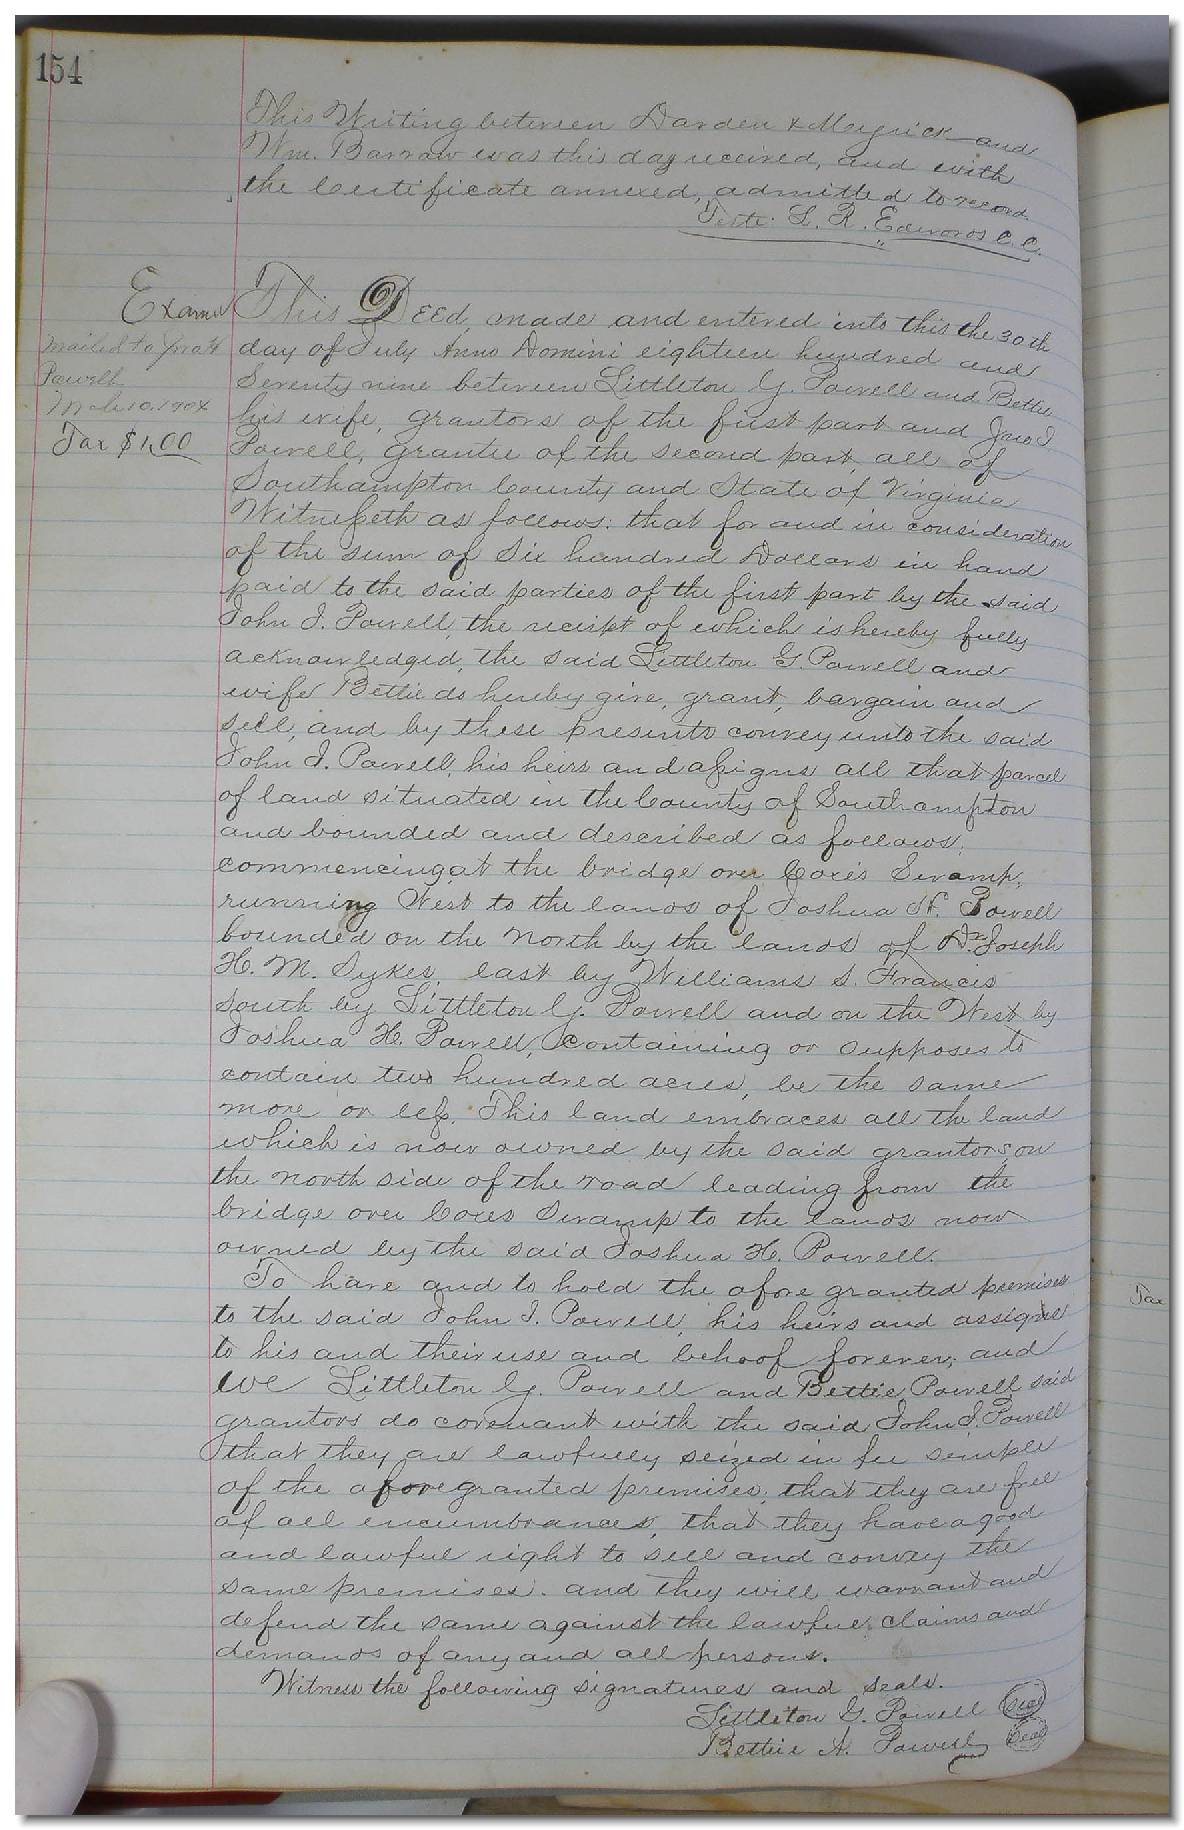 154
This Writing between Darden & Meyrick and
Wm. Barrow was this day received, and with
the Certificate annexed, admitted to record.
Teste: L. R. Edwards C. C.
Examd
mailed to
Powell
Mch 10. 1904
Tax $1.00
This Deed, made and entered into this the 30th
day of July Anno Domini eighteen hundred and
Seventy nine between Littleton G. Powell and Bettie
his wife, grantors of the first part and Jno I.
Powell, grantee of the second part, all of
Southampton County and State of Virginia
Witnesseth as follows: that for and in consideration
of the sum of Six hundred Dollars in hand
paid to the said parties of the first part by the said
John I. Powell, the receipt of which is hereby fully
acknowledged, the said Littleton G. Powell and
wife Bettie do hereby give, grant, bargain and
sell, and by these presents convey unto the said
John I. Powell, his heirs and assigns all that parcel
of land situated in the County of Southampton
and bounded and described as follows:
commencing at the bridge over Coxes Swamp,
running West to the lands of Joshua H. Powell
bounded on the north by the lands of Dr. Joseph
H. M. Sykes, east by Williams S. Francis
South by Littleton G. Powell and on the West by
Joshua H. Powell, containing or supposes to
contain two hundred acres, be the same
more or less. This land embraces all the land
which is now owned by the said grantors, on
the north side of the road leading from the
bridge over Coxes Swamp to the lands now
owned by the said Joshua H. Powell.
To have and to hold the afore granted premises
to the said John I. Powell, his heirs and assigns
to his and their use and behoof forever; and
we Littleton G. Powell and Bettie Powell said
grantors do covenant with the said John I. Powell
that they are lawfully seized in fee simple
of the aforegranted premises, that they are free
of all encumbrances, that they have a good
and lawful right to sell and convey the
same premises. and they will warrant and
defend the same against the lawful claims and
demands of any and all persons.
Witness the following signatures and seals.
Littleton G. Powell Seal
Bettie A. Powell Seal
Tax